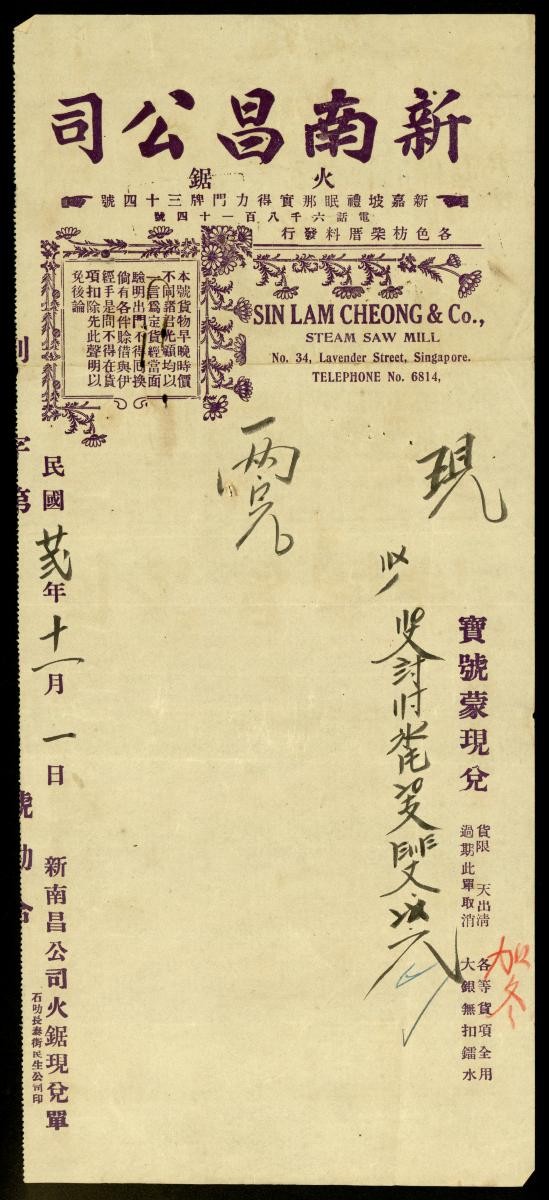 新南昌公司
火鋸
新嘉坡禮眠那實得力門牌三十四號
電話六千八百一十四號
各色枋柴厝料發行
SIN LAM CHEONG & Co.,
STEAM SAW MILL
No. 34, Lavender Street, Singapore.
TELEPHONE No. 6814,
本號貨物早晚時價
不同諸君光顧均以
一言為定貨經當面
驗明出門不得回換
倘有各件賒借與伊
經手是問不得在貨
項扣除先此聲明以
免後論
現
寶號蒙現兌
貨限 天出清
過期此單取消
各等貨項全用
大銀無扣鐳水
加冬
民國 年十一月一日
新南昌公司火鋸現兌單
石叻長泰街民生公司印